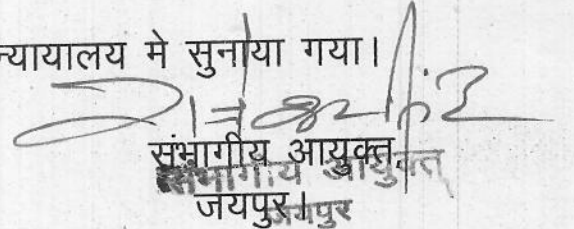 न्यायालय मे सुनाया गया।
संभागीय आयुक्त,
संभागीय आयुक्त
जयपुर।
जयपुर